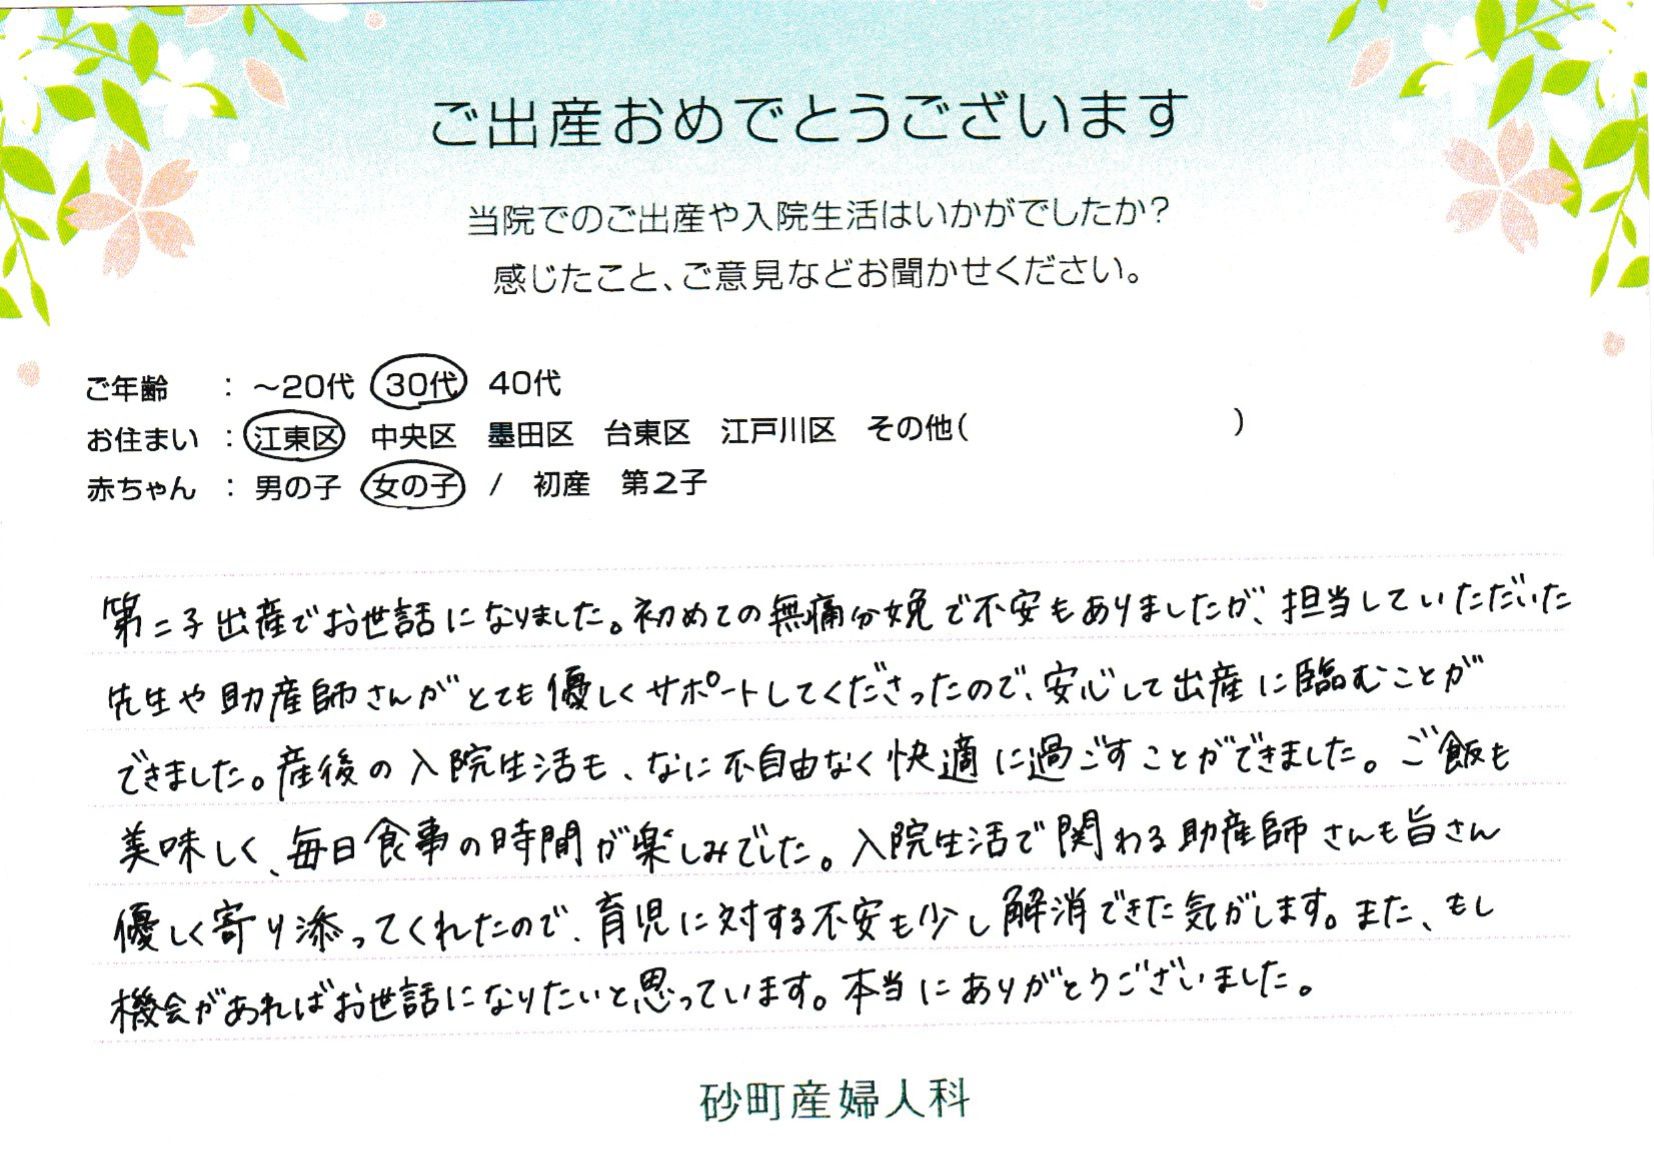 ご出産おめでとうございます
当院でのご出産や入院生活はいかがでしたか?
感じたこと、ご意見などお聞かせください。
ご年齢 : ～20代 30代 40代
お住まい : 江東区 中央区 墨田区 台東区 江戸川区 その他( )
赤ちゃん : 男の子 女の子 / 初産 第2子
第二子出産でお世話になりました。初めての無痛分娩で不安もありましたが、担当していただいた
先生や助産師さんがとても優しくサポートしてくださったので、安心して出産に臨むことが
できました。産後の入院生活も、なに不自由なく快適に過ごすことができました。ご飯も
美味しく、毎日食事の時間が楽しみでした。入院生活で関わる助産師さんも皆さん
優しく寄り添ってくれたので、育児に対する不安も少し解消できた気がします。また、もし
機会があればお世話になりたいと思っています。本当にありがとうございました。
砂町産婦人科